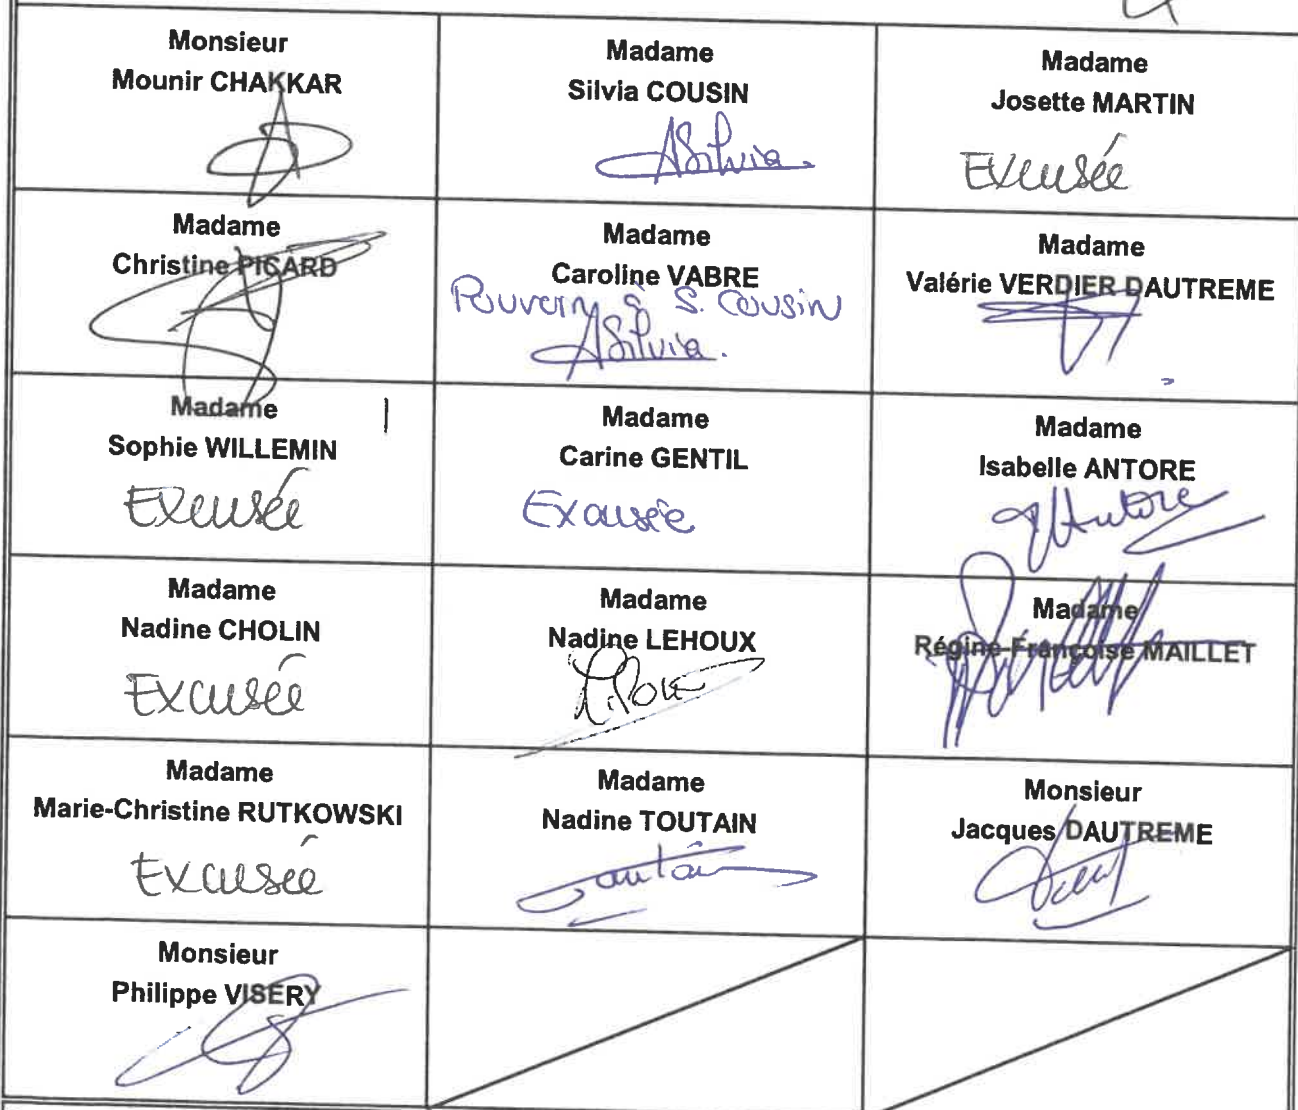 Monsieur
Mounir CHAKKAR
Madame
Silvia COUSIN
ASilvia.
Madame
Josette MARTIN
Excusée
Madame
Christine PICARD
Madame
Caroline VABRE
Pouvoir à S. Cousin
ASilvia.
Madame
Valérie VERDIER DAUTREME
Madame
Sophie WILLEMIN
Excusée
Madame
Carine GENTIL
Excusée
Madame
Isabelle ANTORE
Antore
Madame
Nadine CHOLIN
Excusée
Madame
Nadine LEHOUX
Madame
Régine-Françoise MAILLET
Madame
Marie-Christine RUTKOWSKI
Excusée
Madame
Nadine TOUTAIN
Toutain
Monsieur
Jacques DAUTREME
Monsieur
Philippe VISERY